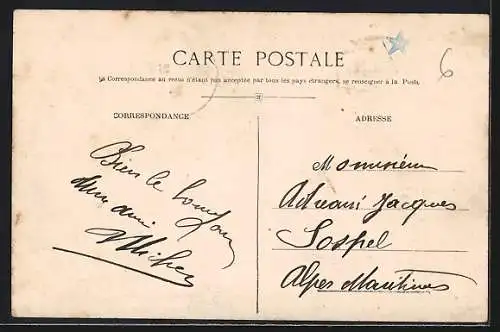 6
CARTE POSTALE
La Correspondance au recto n'étant pas acceptée par tous les pays étrangers, se renseigner à la Poste
CORRESPONDANCE
ADRESSE
Bien le bonjour
d'un ami
Monsieur
Jacques
Sospel
Alpes Maritimes